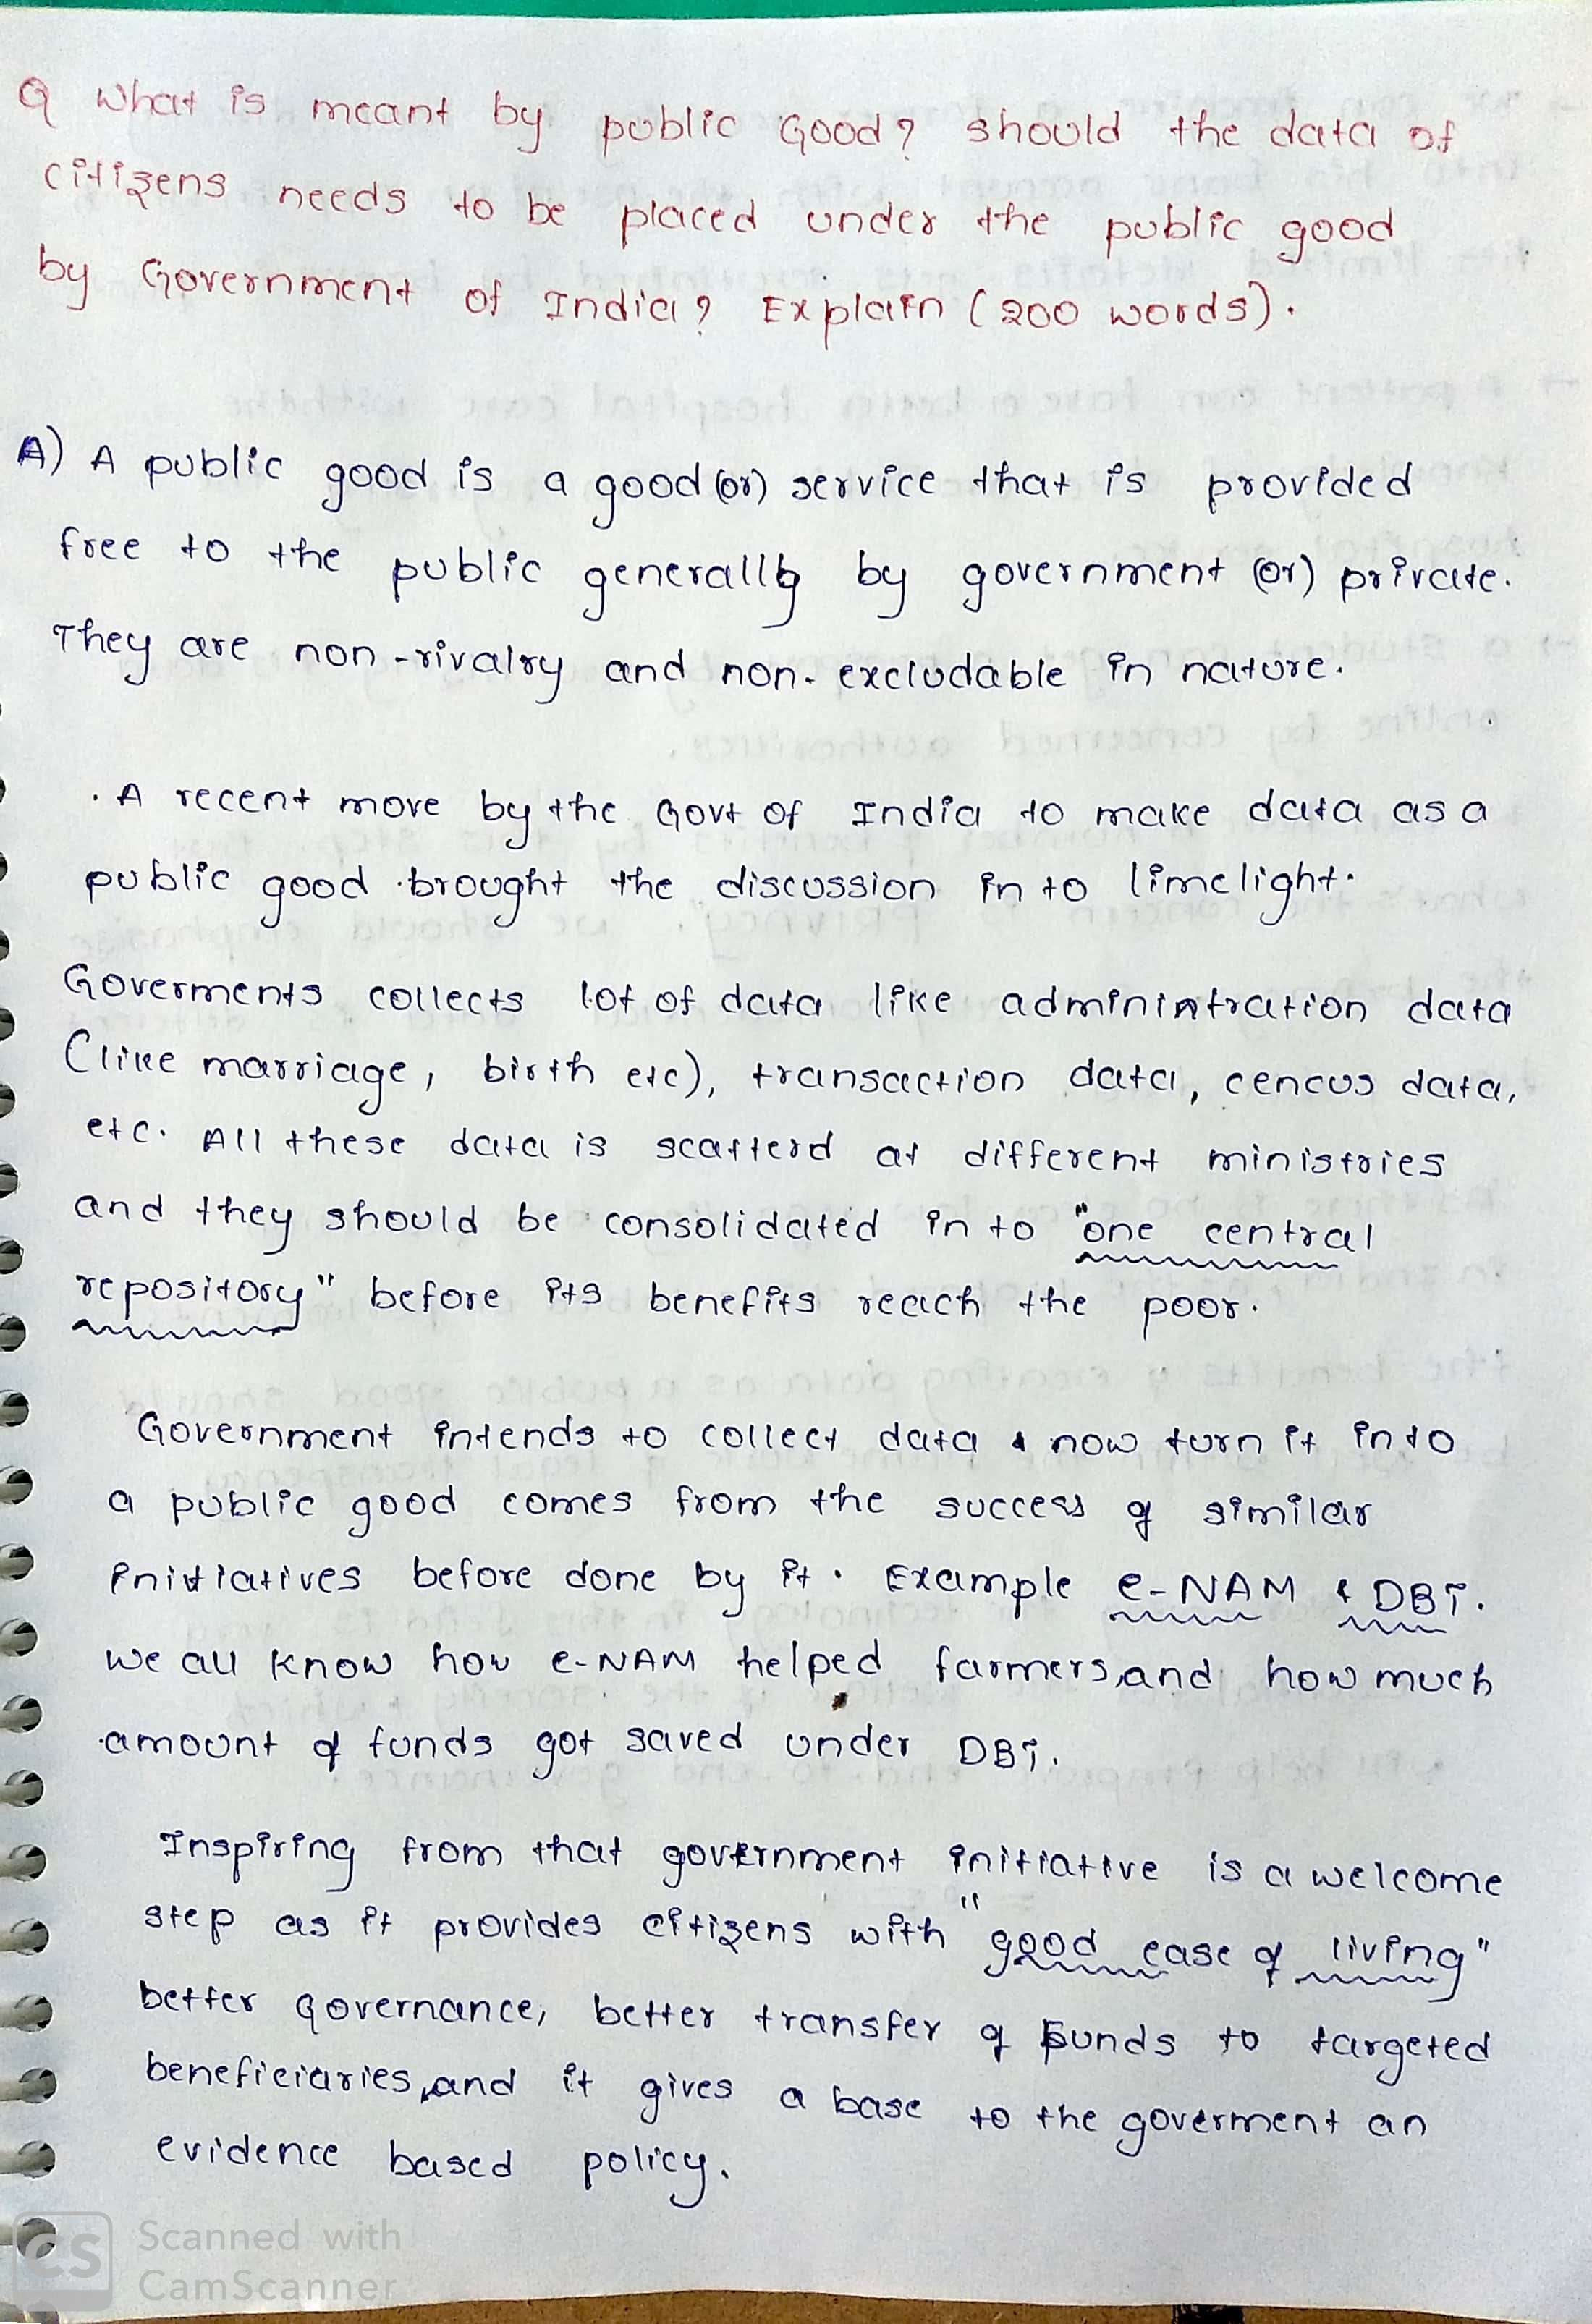 Q What is meant by public Good? should the data of
citizens needs to be placed under the public good
by Government of India? Explain (200 words).
A) A public good is a good (or) service that is provided
free to the public generally by government (or) private.
They are non-rivalry and non-excludable in nature.
. A recent move by the Govt of India to make data as a
public good brought the discussion in to limelight.
Goverments collects lot of data like administration data
(like marriage, birth etc), transaction data, cencus data,
etc. All these data is scatterd at different ministries
and they should be consolidated in to "one central
repository" before its benefits reach the poor.
Government intends to collect data & now turn it in to
a public good comes from the success of similar
initiatives before done by it. Example e-NAM & DBT.
we all know how e-NAM helped farmers, and how much
amount of funds got saved under DBT.
Inspiring from that government initiative is a welcome
step as it provides citizens with "good ease of living"
better governance, better transfer of funds to targeted
beneficiaries, and it gives a base to the goverment an
evidence based policy.
CS Scanned with
CamScanner